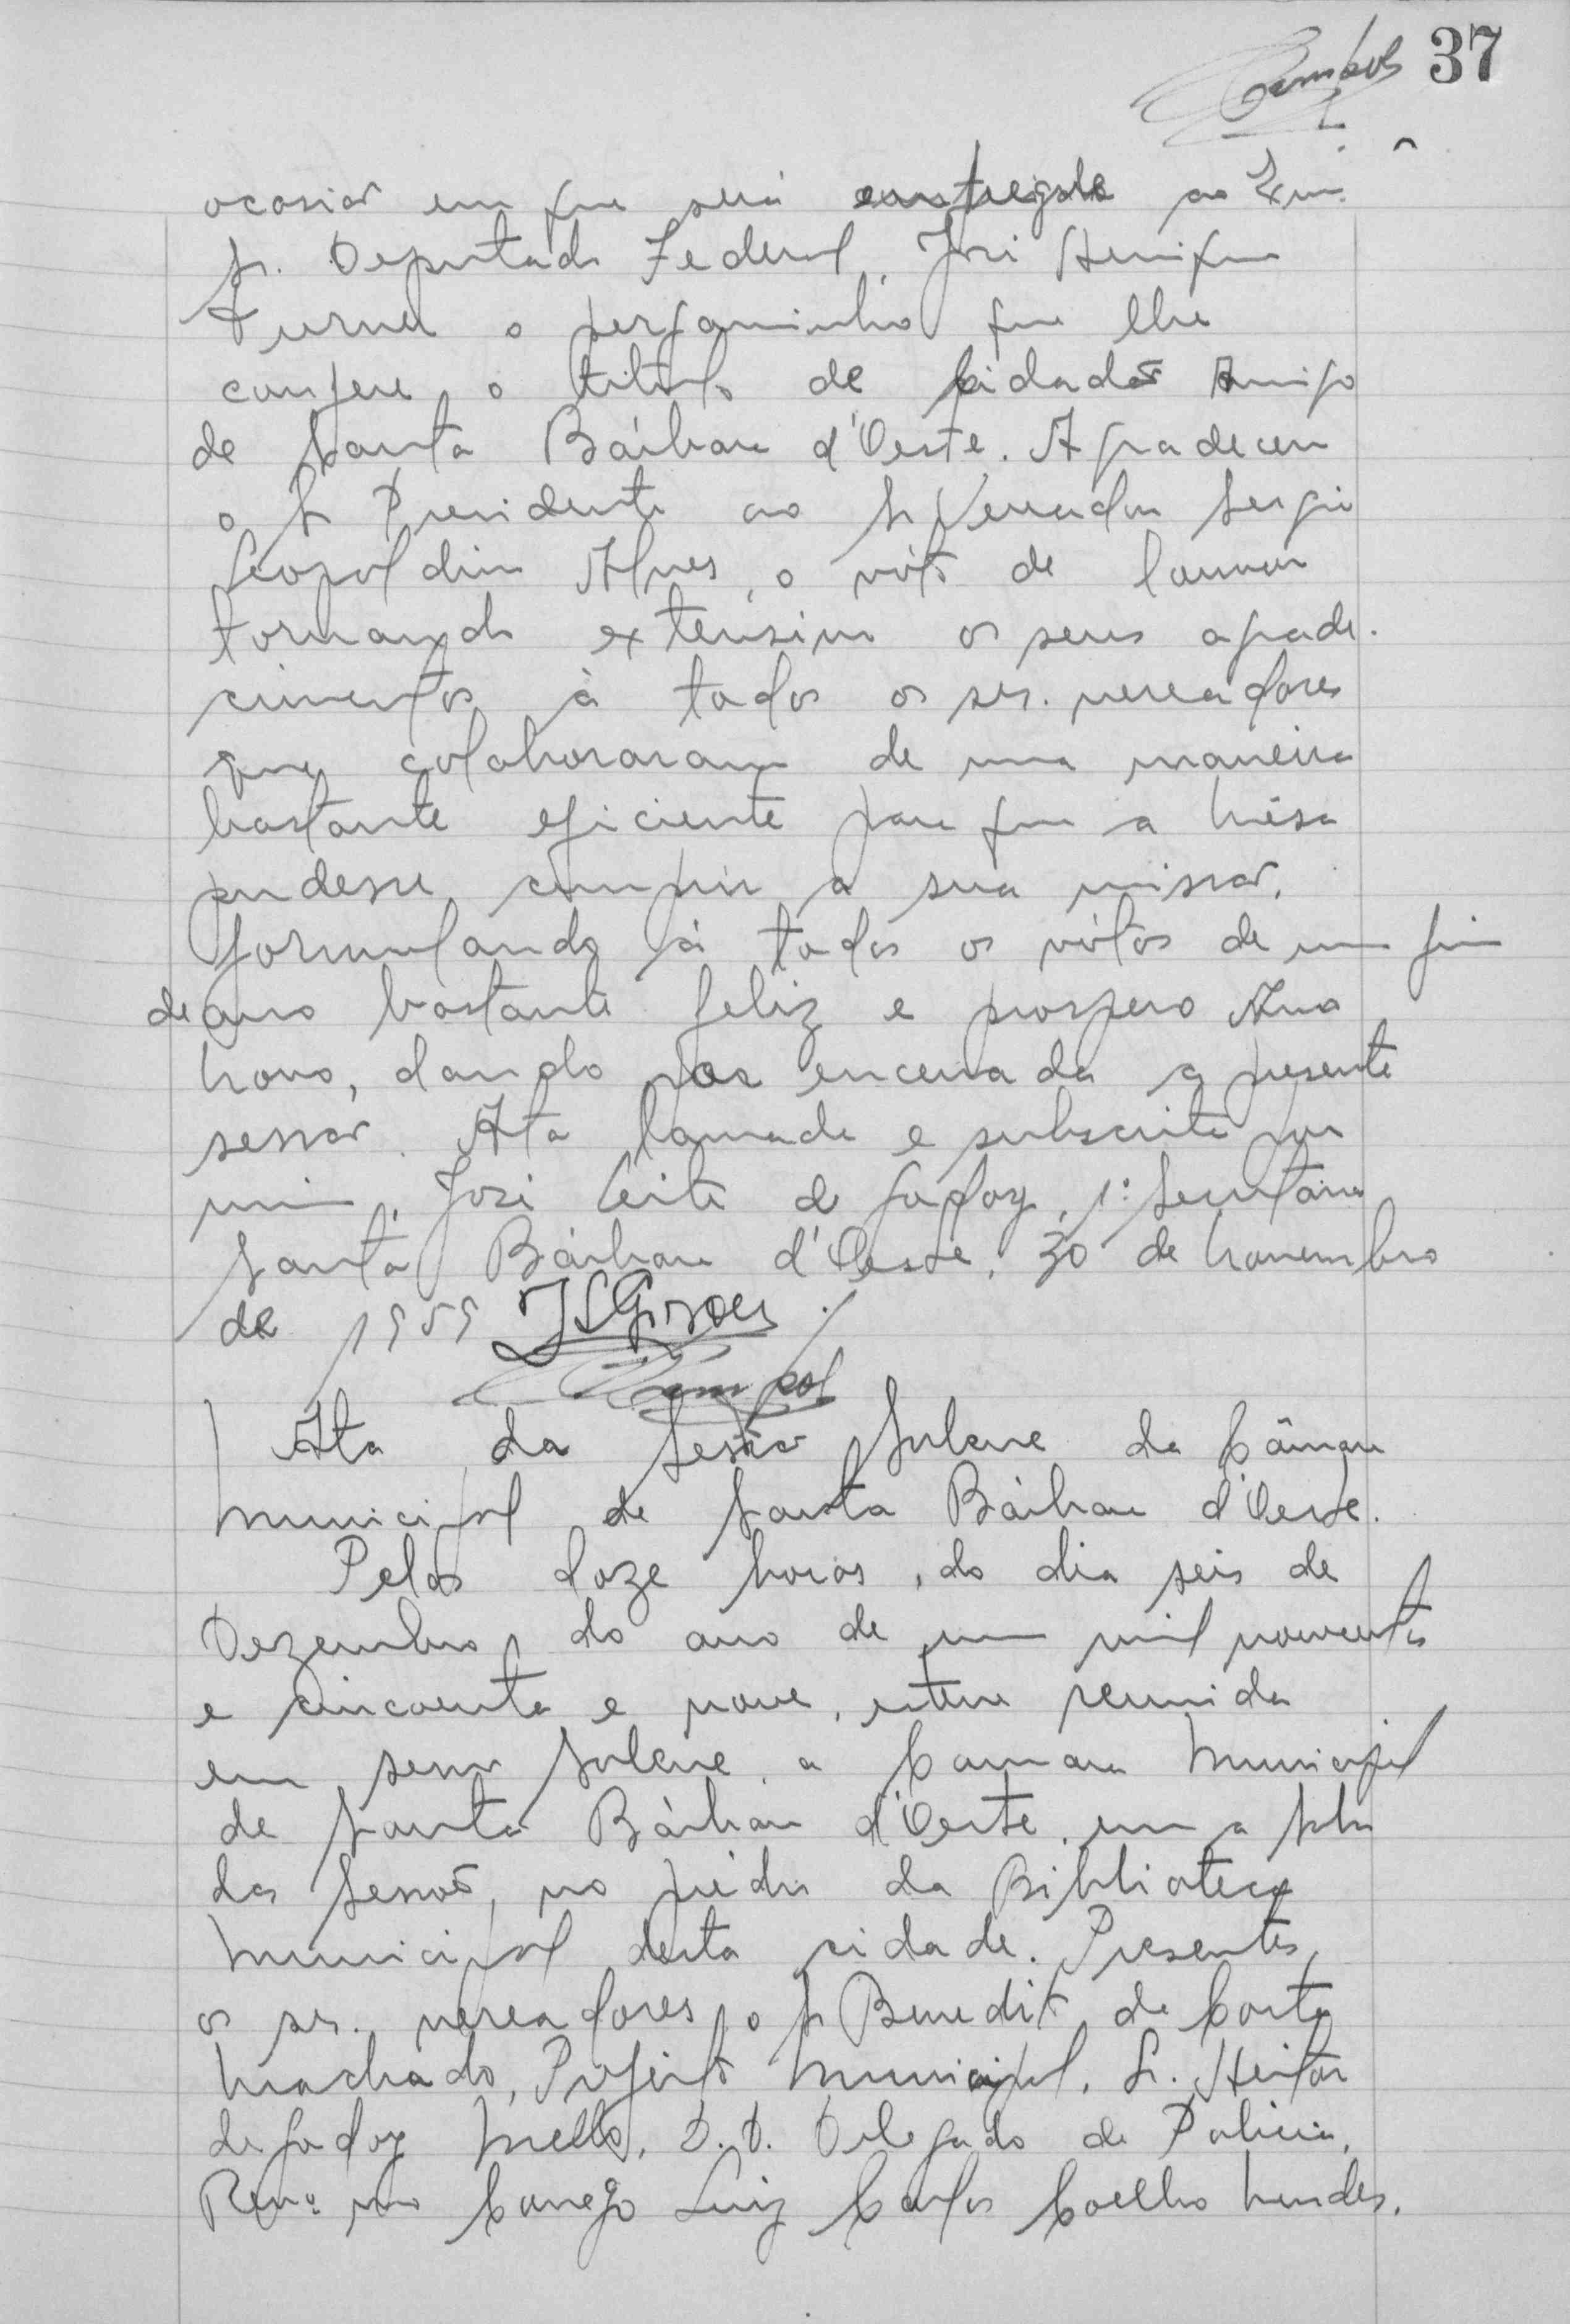 37
ocasião em que será entregue ao Exmo.
Sr. Deputado Federal, José Henrique
Turner o pergaminho que lhe
confere o titulo de Cidadão Amigo
de Santa Bárbara d'Oeste. Agradeceu
o Sr Presidente ao Sr Vereador Sergio
Leopoldino Alves, o vóto de louvor
tornando extensivo os seus agrade-
cimentos à todos os srs. vereadores
que colaboraram de uma maneira
bastante eficiente para que a Mésa
pudesse cumprir a sua missão,
formulando à todos os vótos de um fim
de ano bastante feliz e prospero Ano
Novo, dando por encerrada a presente
sessão. Ata lavrada e subscrita por
mim, José Leite de Godoy, 1º Secretário
Santa Bárbara d'Oeste, 30 de Novembro
de 1959
Ata da Sessão Solene da Câmara
Municipal de Santa Bárbara d'Oeste.
Pelas doze horas, do dia seis de
Dezembro, do ano de um mil novecentos
e cincoenta e nove, esteve reunida
em sessão Solene, a Camara Municipal
de Santa Bárbara d'Oeste, em a sala
das Sessões, no prédio da Biblioteca
Municipal desta cidade. Presentes,
os srs. vereadores, o Sr Benedito da Costa
Machado, Prefeito Municipal, Sr. Heitor
de Godoy Mello, D.D. Delegado de Policia,
Revº Conego Luiz Carlos Coelho Mendes,